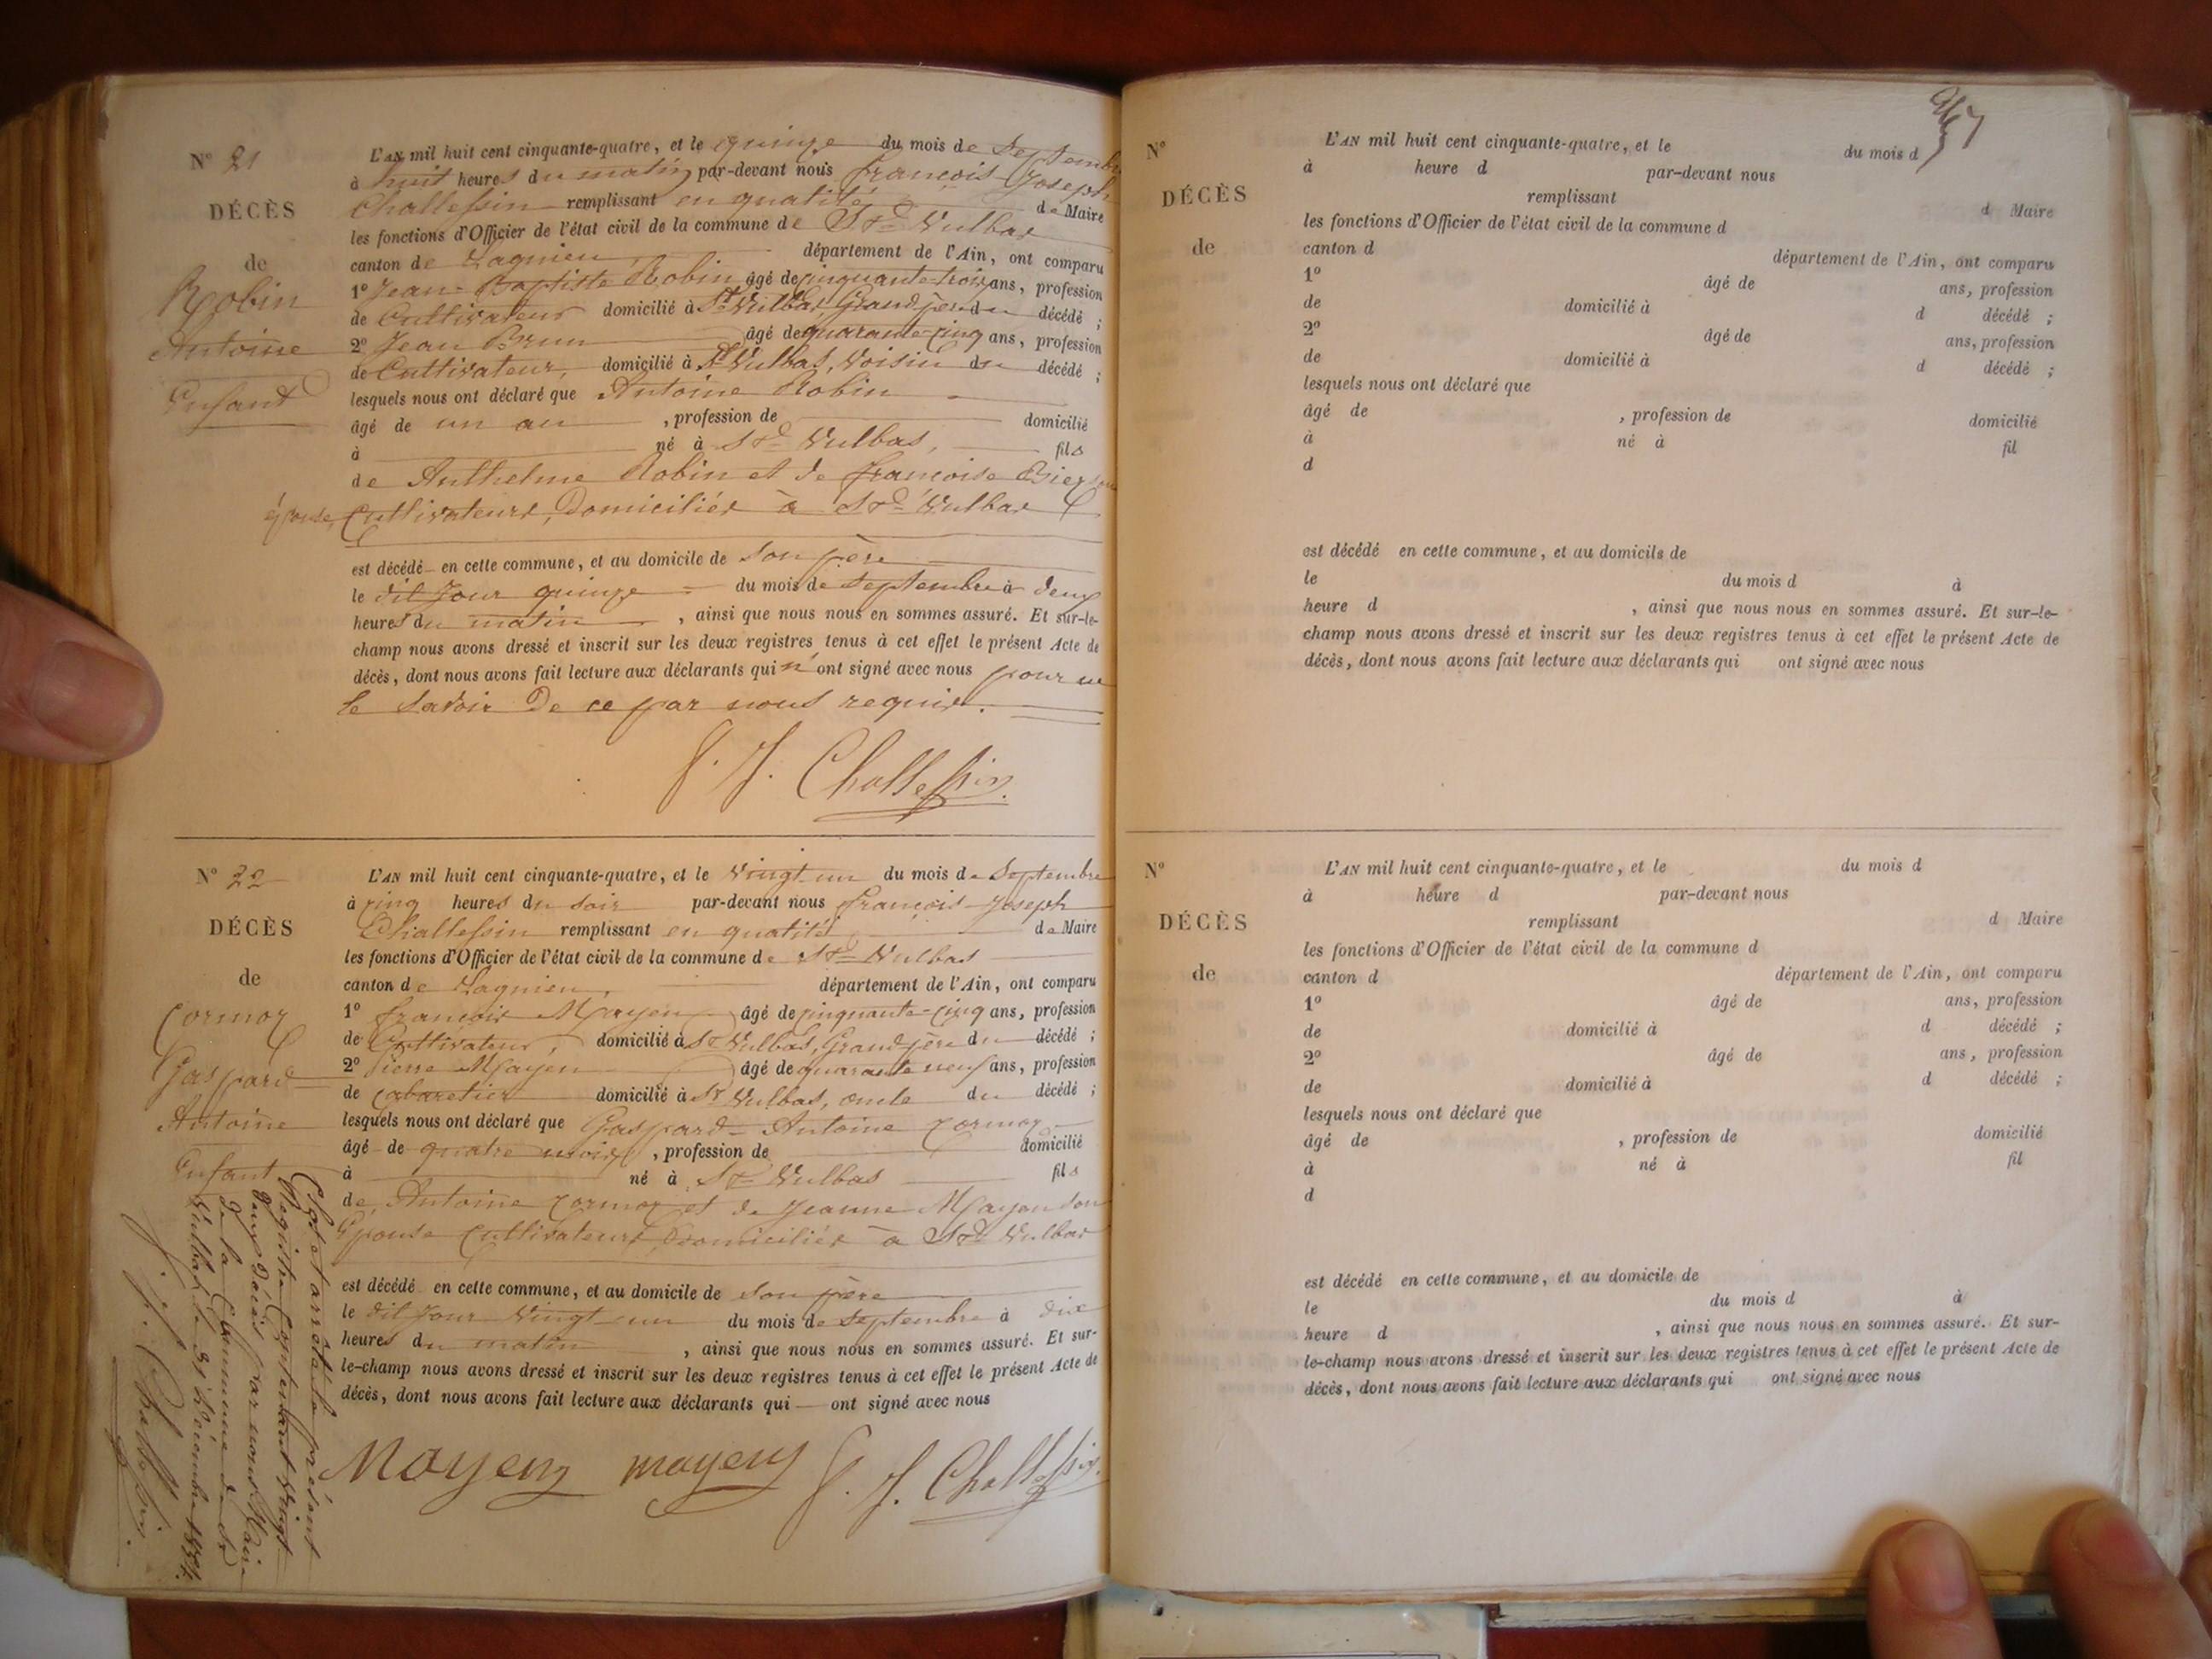 N° 21
DÉCÈS
de
Robin
Antoine
Enfant
L'AN mil huit cent cinquante-quatre, et le quinze du mois de Septembre
à huit heures du matin par-devant nous françois-Joseph
Challessin remplissant en qualité de Maire
les fonctions d'Officier de l'état civil de la commune de St Vulbas
canton de Lagnieu département de l'Ain, ont comparu
1° Jean-Baptiste Robin âgé de cinquante-trois ans, profession
de Cultivateur domicilié à St Vulbas, Grand père du décédé ;
2° Jean Brun âgé de quarante-cinq ans, profession
de Cultivateur, domicilié à St Vulbas, Voisin du décédé ;
lesquels nous ont déclaré que Antoine Robin
âgé de un an , profession de domicilié
à né à St Vulbas, fils
de Anthelme Robin et de françoise
épouse, Cultivateurs, Domiciliés à St Vulbas
est décédé en cette commune, et au domicile de son père
le dit Jour quinze du mois de Septembre à deux
heures du matin , ainsi que nous nous en sommes assuré. Et sur-le-
champ nous avons dressé et inscrit sur les deux registres tenus à cet effet le présent Acte de
décès, dont nous avons fait lecture aux déclarants qui n' ont signé avec nous pour ne
le savoir De ce par nous requis.
f. J. Challessin
N° 22
DÉCÈS
de
Cormoz
Gaspard
Antoine
Enfant
L'AN mil huit cent cinquante-quatre, et le vingt-un du mois de Septembre
à cinq heures du soir par-devant nous françois-Joseph
Challessin remplissant en qualité de Maire
les fonctions d'Officier de l'état civil de la commune de St Vulbas
canton de Lagnieu, département de l'Ain, ont comparu
1° françois Mayen âgé de cinquante-cinq ans, profession
de Cultivateur, domicilié à St Vulbas, Grand père du décédé ;
2° Pierre Mayen âgé de quarante neuf ans, profession
de cabaretier domicilié à St Vulbas, oncle du décédé ;
lesquels nous ont déclaré que Gaspard-Antoine Cormoz
âgé de quatre mois , profession de domicilié
à né à St Vulbas fils
de Antoine Cormoz et de Jeanne Mayen son
Epouse Cultivateurs, Domiciliés à St Vulbas
est décédé en cette commune, et au domicile de son père
le dit Jour vingt-un du mois de Septembre à dix
heures du matin , ainsi que nous nous en sommes assuré. Et sur-
le-champ nous avons dressé et inscrit sur les deux registres tenus à cet effet le présent Acte de
décès, dont nous avons fait lecture aux déclarants qui ont signé avec nous
Mayen mayen f. J. Challessin
Clos et arrêté le présent
Registre Contenant Vingt
deux décès par nous Maire
de la Commune de St
Vulbas le 31 Décembre 1854.
f. J. Challessin
N°
DÉCÈS
de
L'AN mil huit cent cinquante-quatre, et le du mois d
à heure d par-devant nous
remplissant d Maire
les fonctions d'Officier de l'état civil de la commune d
canton d département de l'Ain, ont comparu
1° âgé de ans, profession
de domicilié à d décédé ;
2° âgé de ans, profession
de domicilié à d décédé ;
lesquels nous ont déclaré que
âgé de , profession de domicilié
à né à fil
d
est décédé en cette commune, et au domicils de
le du mois d à
heure d , ainsi que nous nous en sommes assuré. Et sur-le-
champ nous avons dressé et inscrit sur les deux registres tenus à cet effet le présent Acte de
décès, dont nous avons fait lecture aux déclarants qui ont signé avec nous
N°
DÉCÈS
de
L'AN mil huit cent cinquante-quatre, et le du mois d
à heure d par-devant nous
remplissant d Maire
les fonctions d'Officier de l'état civil de la commune d
canton d département de l'Ain, ont comparu
1° âgé de ans, profession
de domicilié à d décédé ;
2° âgé de ans, profession
de domicilié à d décédé ;
lesquels nous ont déclaré que
âgé de , profession de domicilié
à né à fil
d
est décédé en cette commune, et au domicile de
le du mois d à
heure d , ainsi que nous nous en sommes assuré. Et sur-
le-champ nous avons dressé et inscrit sur les deux registres tenus à cet effet le présent Acte de
décès, dont nous avons fait lecture aux déclarants qui ont signé avec nous